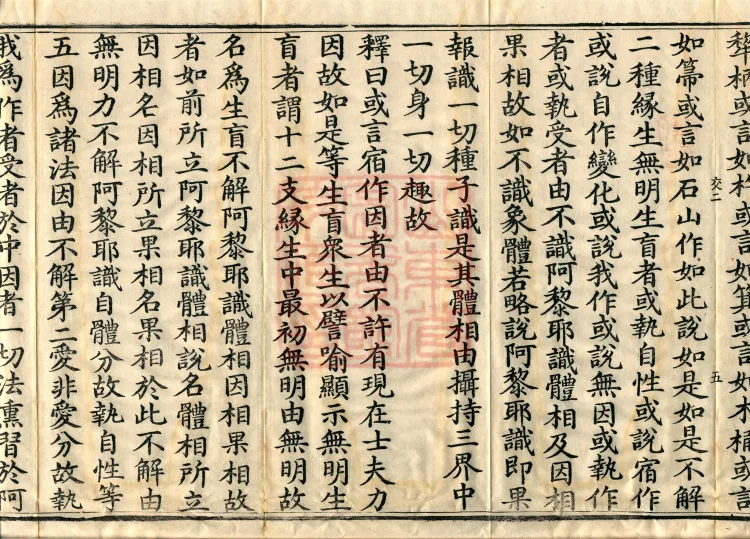 犂柄或言如杵或言如箕或言如木桶或言
如箒或言如石山作如此說如是如是不解
交二
五
二種緣生無明生盲者或執自性或說宿作
或說自作變化或說我作或說無因或執作
者或執受者由不識阿黎耶識體相及因相
果相故如不識象體若略說阿黎耶識即果
報識一切種子識是其體相由攝持三界中
一切身一切趣故
釋曰或言宿作因者由不許有現在士夫力
因故如是等生盲衆生以譬喻顯示無明生
盲者謂十二支緣生中最初無明由無明故
名爲生盲不解阿黎耶識體相因相果相故
者如前所立阿黎耶識體相說名體相所立
因相名因相所立果相名果相於此不解由
無明力不解阿黎耶識自體分故執自性等
五因爲諸法因由不解第二愛非愛分故執
我爲作者受者於中因者一切法熏習於阿